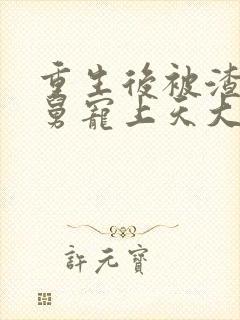 重生後被渣
舅寵上天大
許元寶